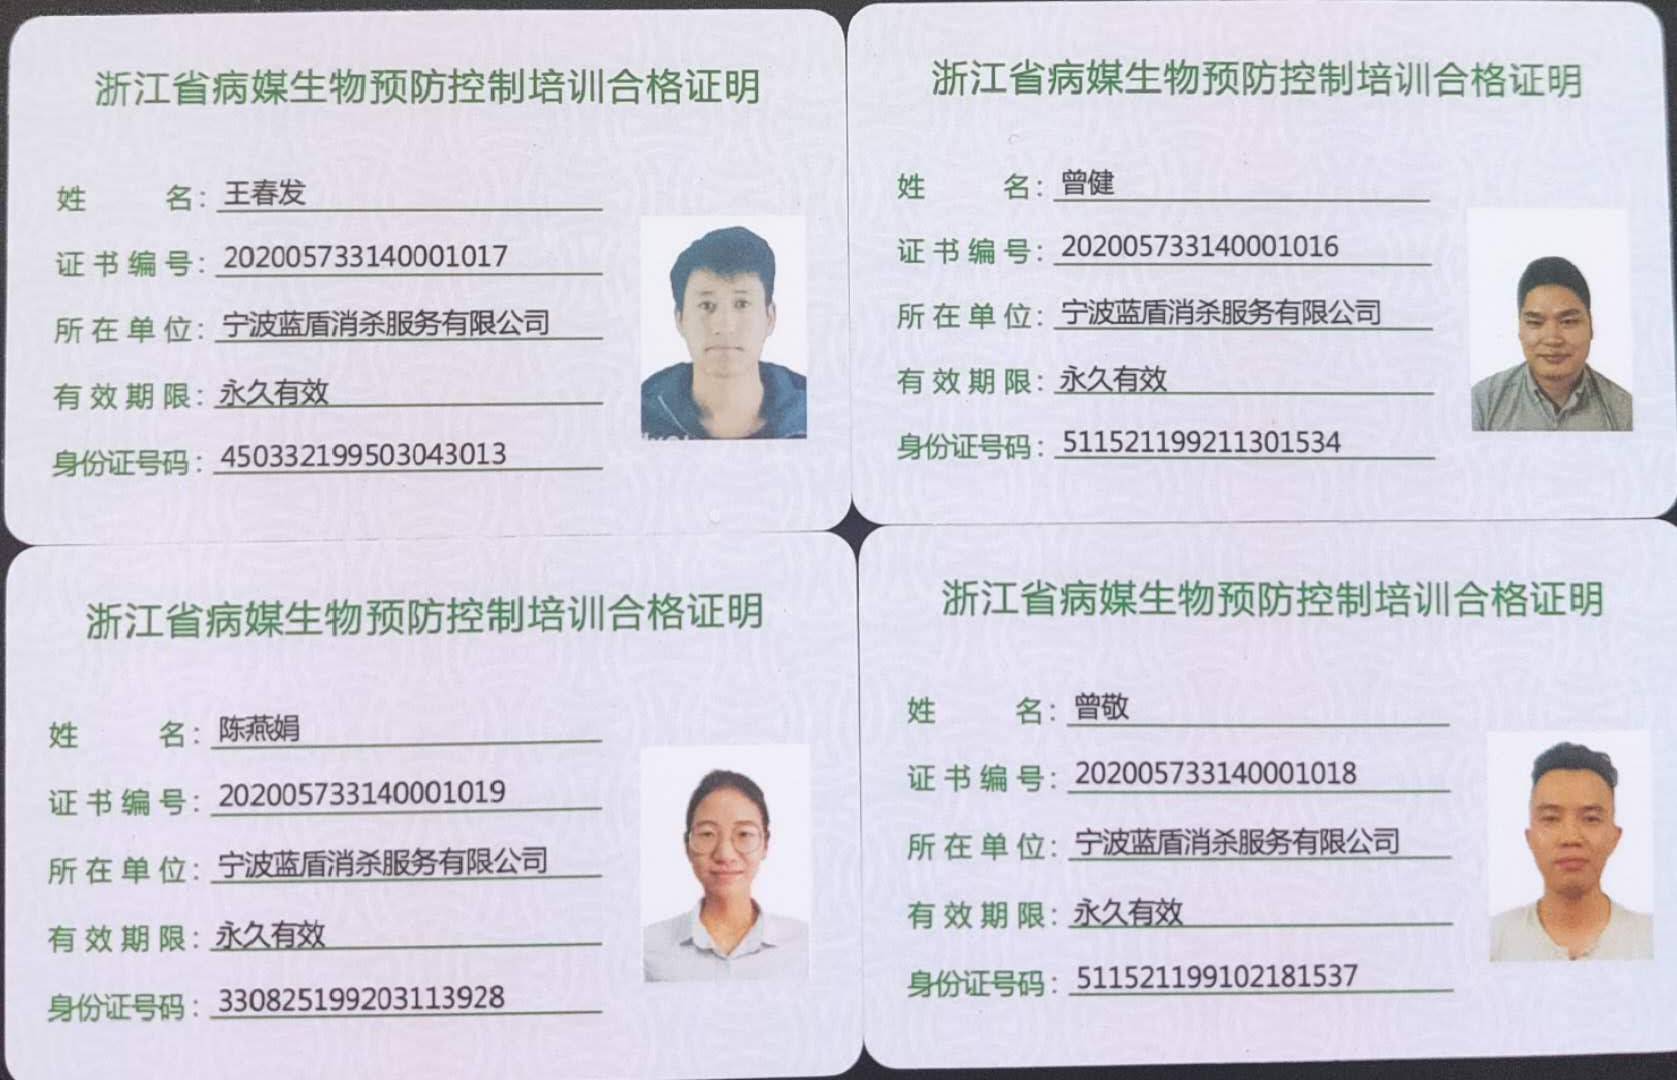 浙江省病媒生物预防控制培训合格证明
姓名：王春发
证书编号：202005733140001017
所在单位：宁波蓝盾消杀服务有限公司
有效期限：永久有效
身份证号码：450332199503043013
浙江省病媒生物预防控制培训合格证明
姓名：曾健
证书编号：202005733140001016
所在单位：宁波蓝盾消杀服务有限公司
有效期限：永久有效
身份证号码：511521199211301534
浙江省病媒生物预防控制培训合格证明
姓名：陈燕娟
证书编号：202005733140001019
所在单位：宁波蓝盾消杀服务有限公司
有效期限：永久有效
身份证号码：330825199203113928
浙江省病媒生物预防控制培训合格证明
姓名：曾敬
证书编号：202005733140001018
所在单位：宁波蓝盾消杀服务有限公司
有效期限：永久有效
身份证号码：511521199102181537